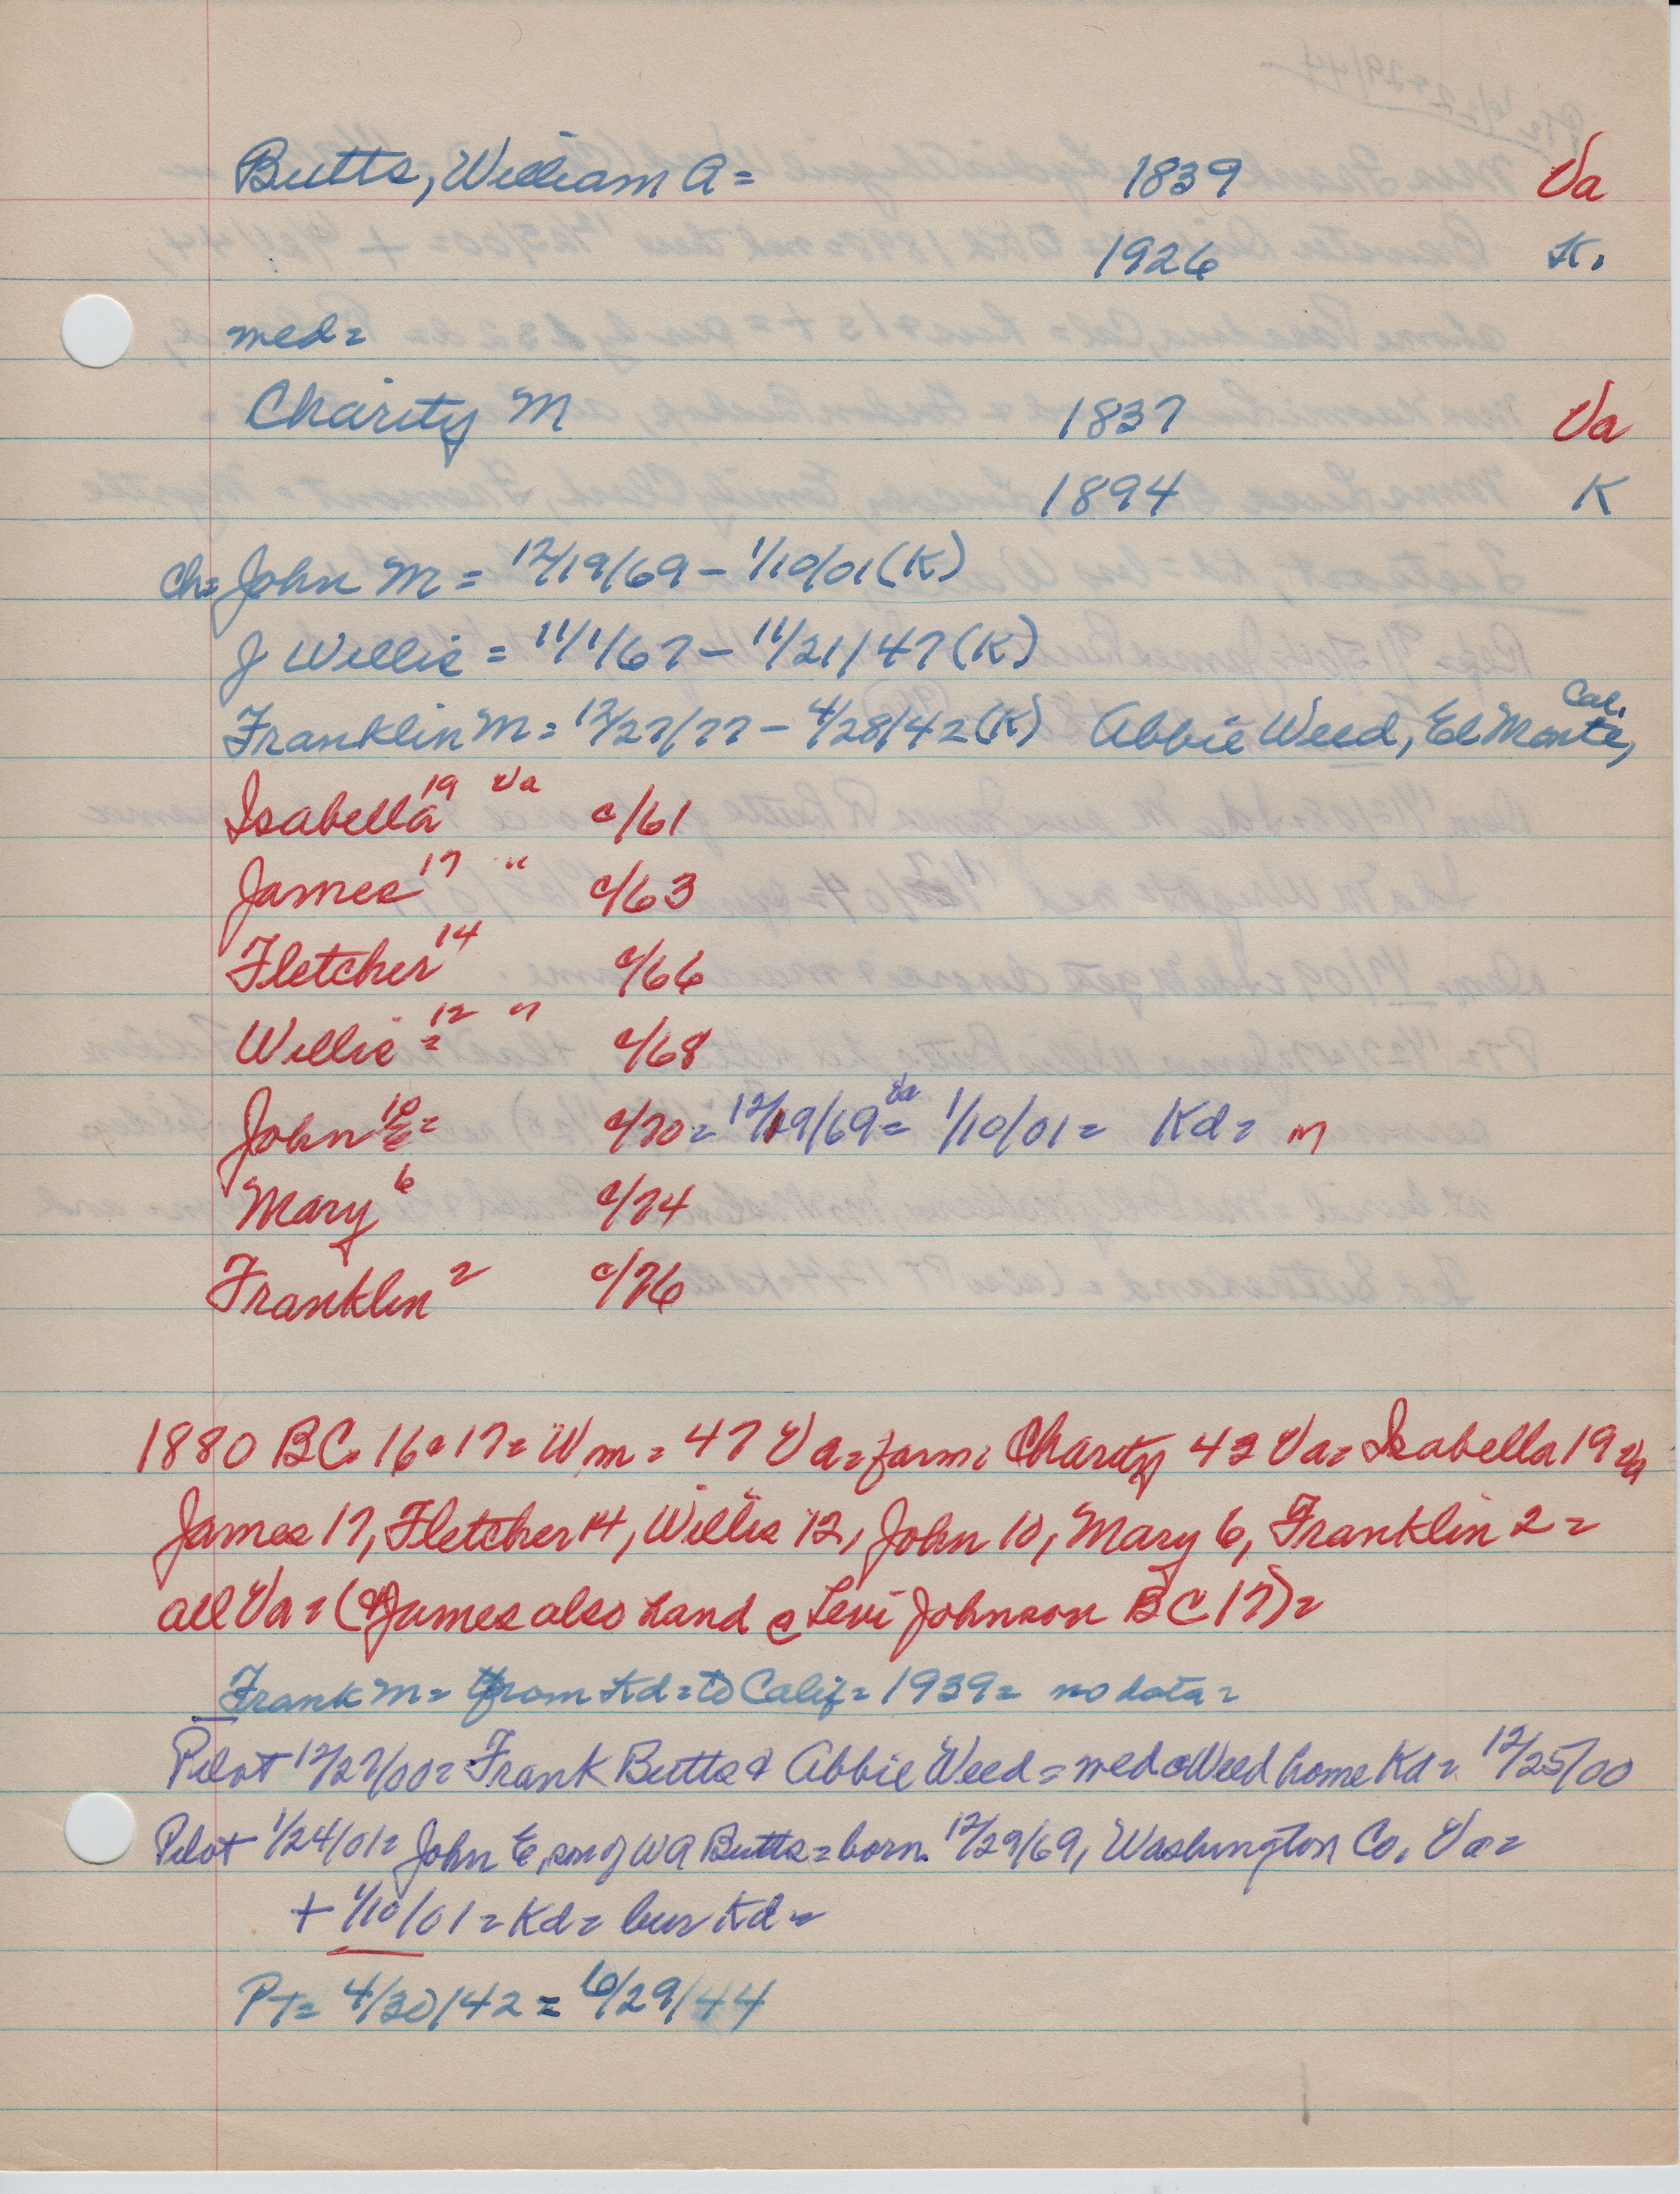 Butts, William A = 1839 Va
1926 K.
med =
Charity M 1837 Va
1894 K
ch = John M = 12/19/69 – 1/10/01 (K)
J Willie = 11/1/67 – 11/21/47 (K)
Franklin M = 12/27/77 – 4/28/42 (K) Abbie Weed, El Monte, Cal.
Isabella 19 Va c/61
James 17 " c/63
Fletcher 14 c/66
Willie = 12 " c/68
John E = 10 c/70 = 12/19/69 = Va 1/10/01 = Kd = m
Mary 6 c/74
Franklin 2 c/76
1880 BC. 16 = 17 = Wm = 47 Va = farm = Charity 42 Va = Isabella 19 Va
James 17, Fletcher 14, Willie 12, John 10, Mary 6, Franklin 2 =
all Va = (James also hand c Levi Johnson BC 17) =
Frank M = from Kd = to Calif = 1939 = no data =
Pilot 12/27/00 = Frank Butts & Abbie Weed = med Weed home Kd = 12/25/00
Pilot 1/24/01 = John E, son of WA Butts = born 12/29/69, Washington Co, Va =
+ 1/10/01 = Kd = bur Kd =
PT = 4/30/42 = 6/29/44